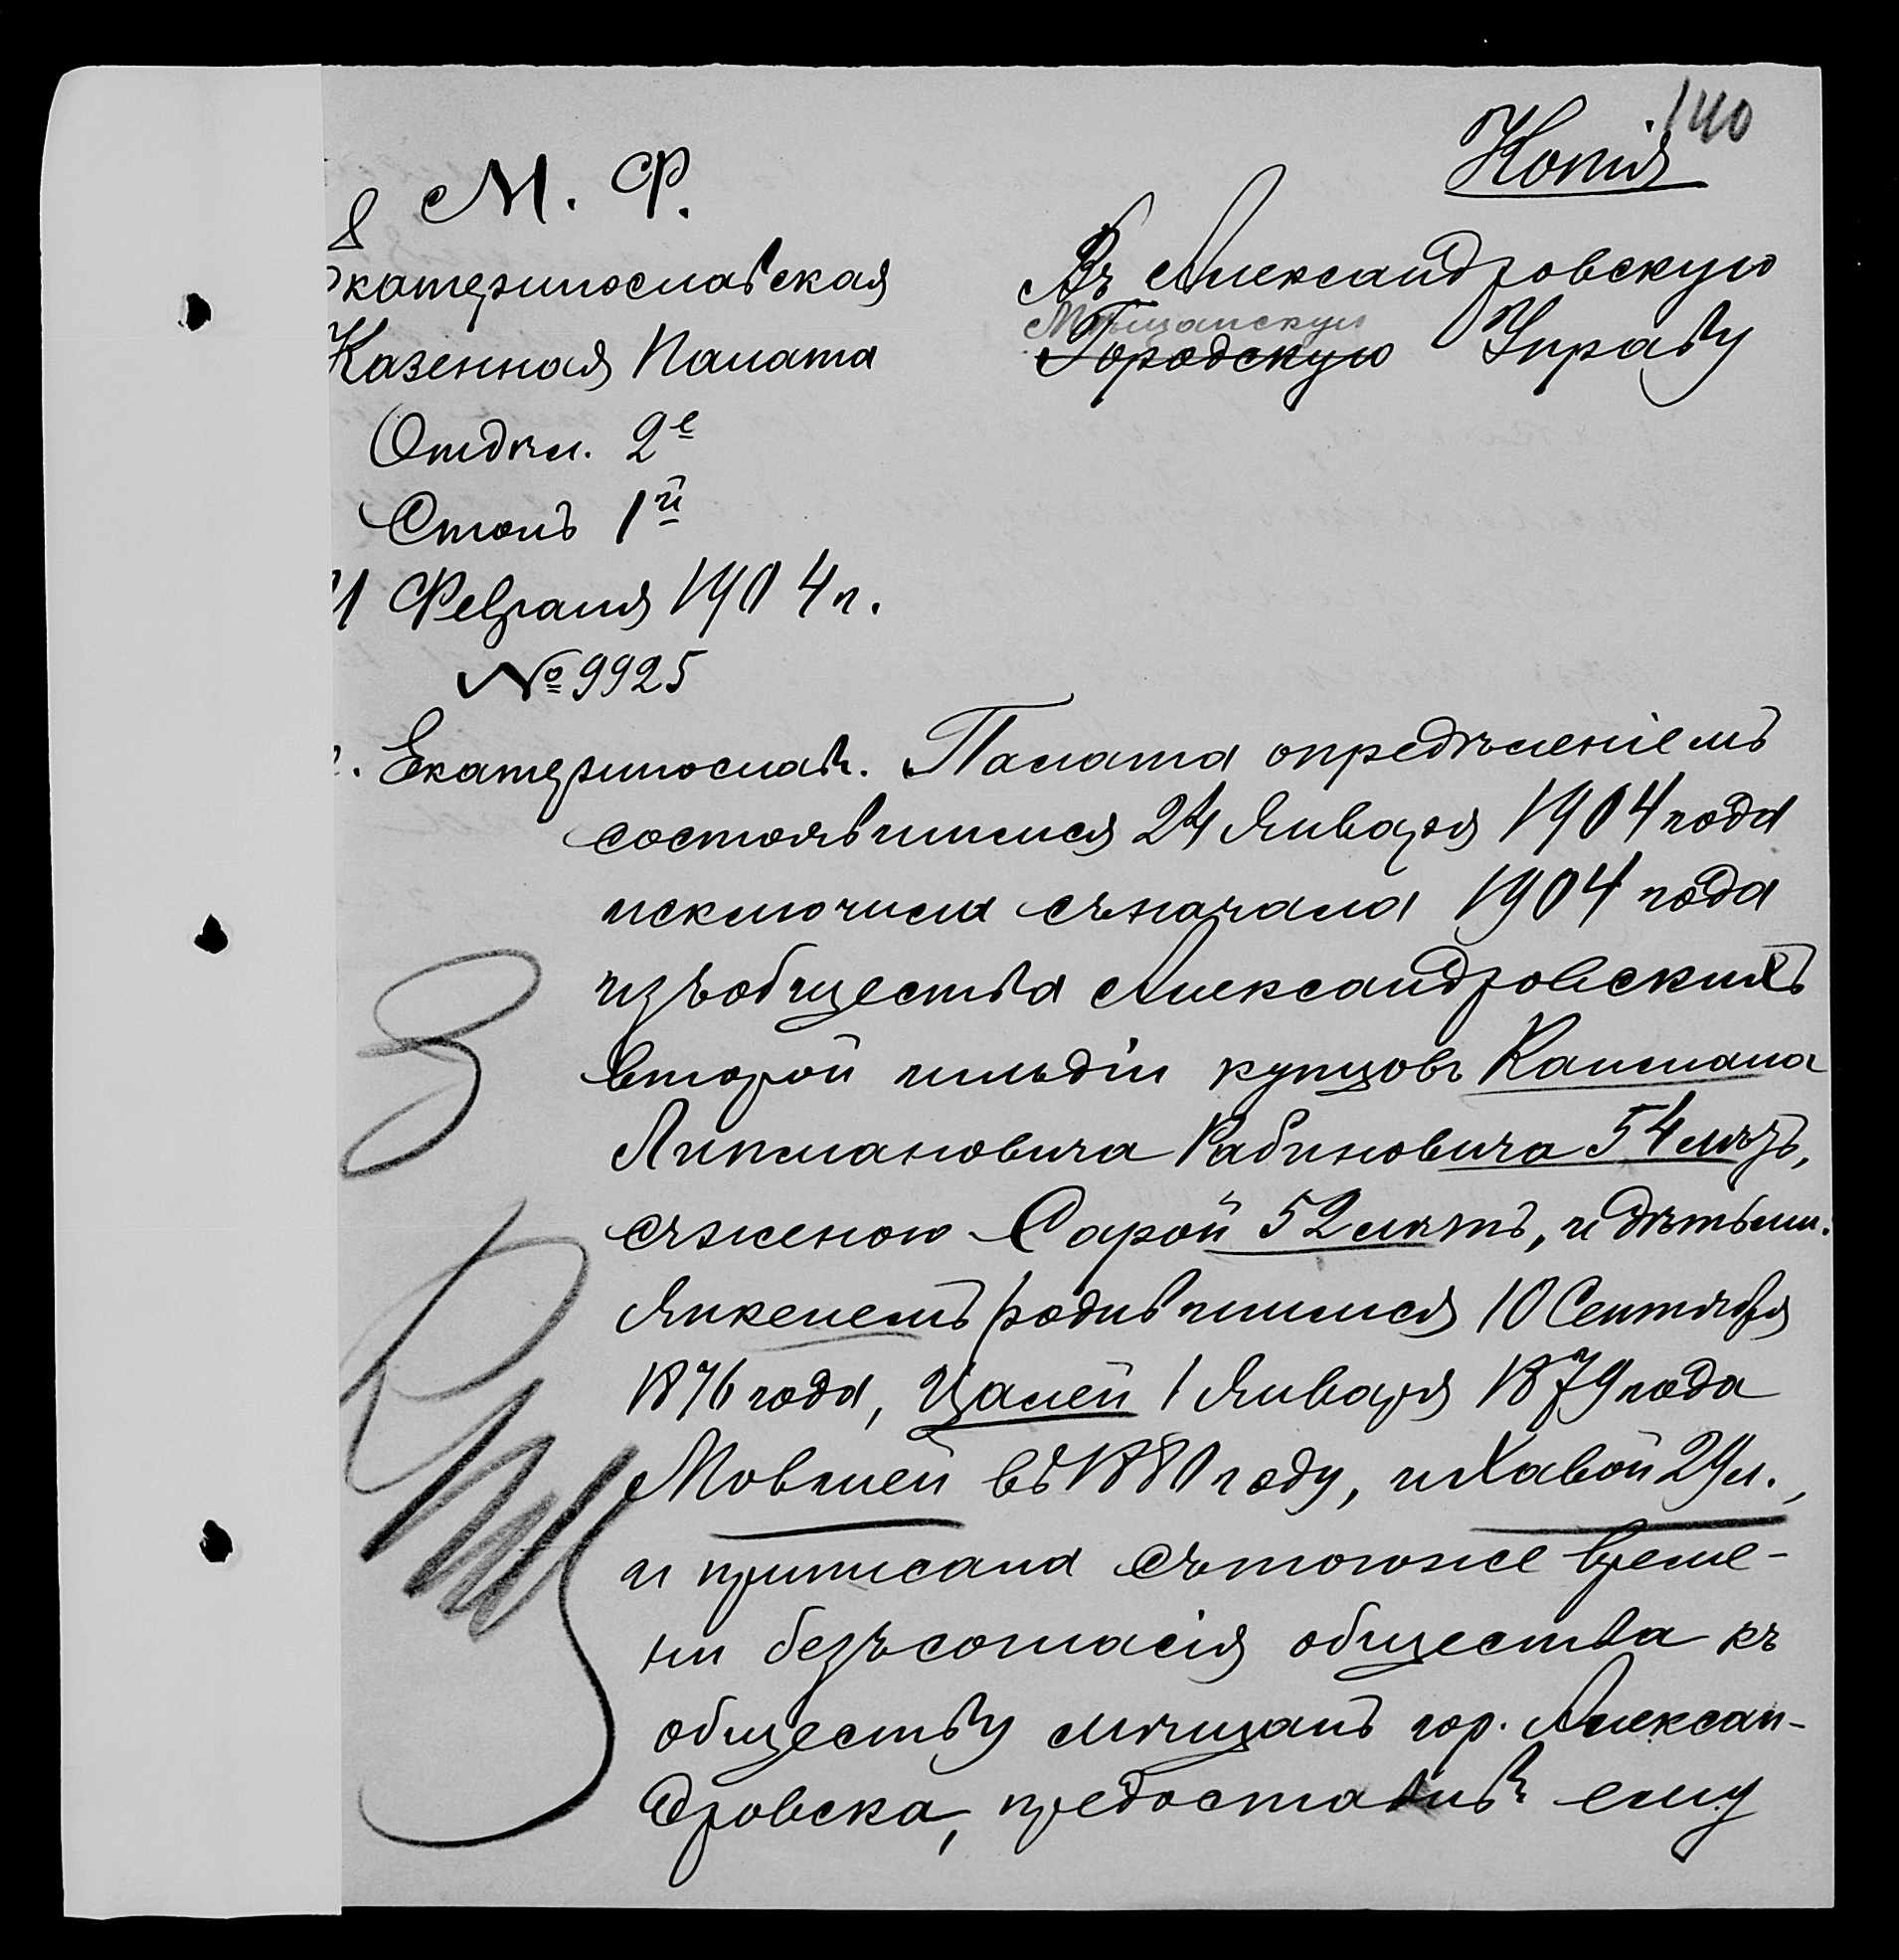 140
Копія
М. Ф.
Екатеринославская
Казенная Палата
Отдѣл. 2е
Столъ 1й
Февраля 1904 г.
№ 9925
г. Екатеринослав.
Въ Александровскую
Мѣщанскую
Городскую Управу
Палата опредѣленіемъ
состоявшимся 24 Января 1904 года
исключила съ начала 1904 года
изъ общества Александровскихъ
второй гильдіи купцовъ Калмана
Липмановича Рабиновича 54 лѣтъ,
съ женою Сарой 52 лѣтъ, и дѣтьми.
Янкелемъ родившимся 10 Сентября
1876 года, Цалей 1 Января 1879 года
Мовшей въ 1880 году, и Хавой 29 л.,
и приписала съ того же време-
ни безъ согласія общества къ
обществу мѣщанъ гор. Алексан-
дровска, предоставивъ ему